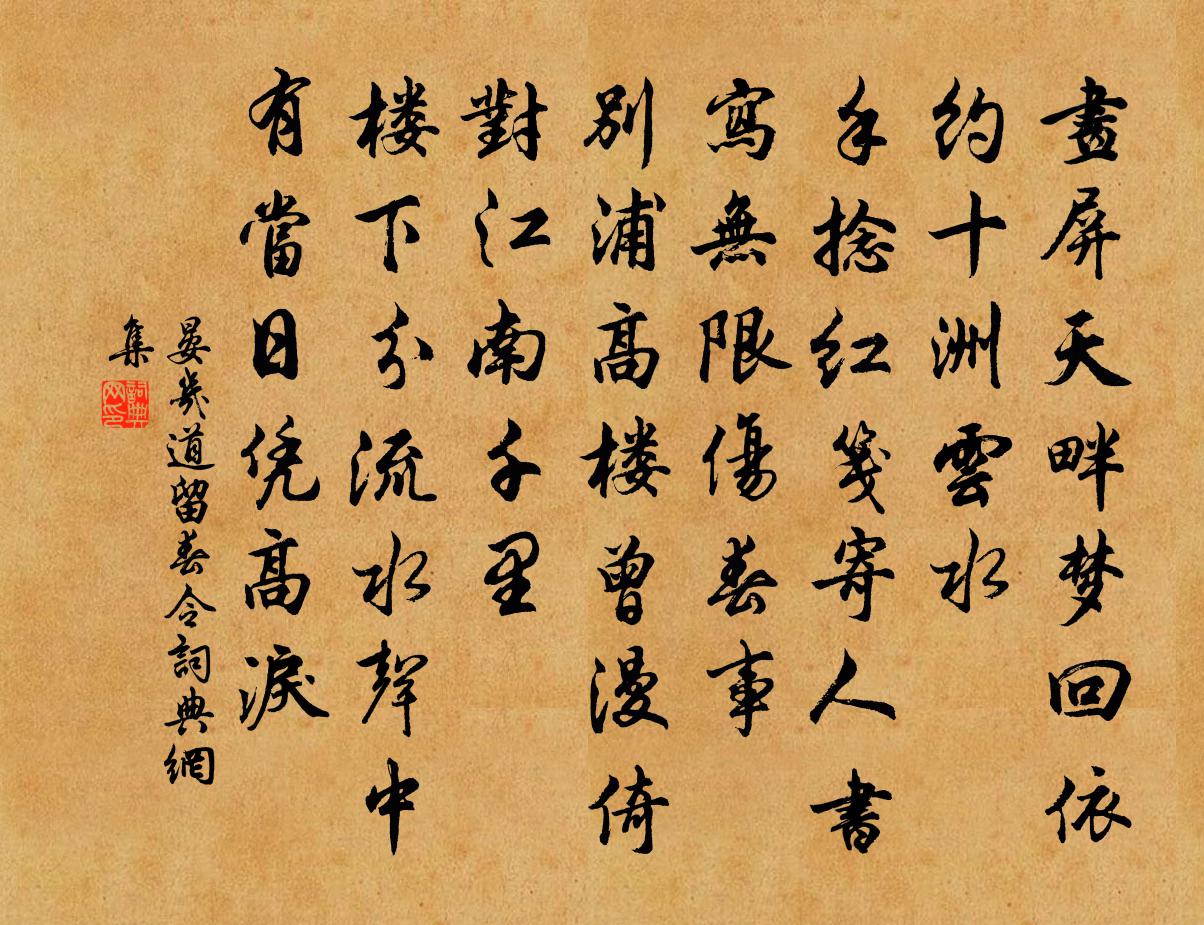 畫屏天畔梦回依
約十洲雲水
手捻紅箋寄人書
寫無限傷春事
別浦高樓曾漫倚
對江南千里
樓下分流水聲中
有當日凭高淚
晏幾道留春令詞典網
集
詞典网印